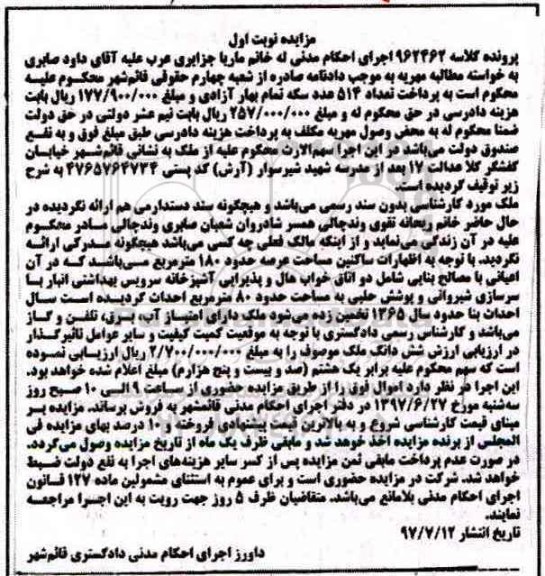 مزایده نوبت اول
پرونده کلاسه ۹۶۲۴۶۲ اجرای احکام مدنی له خانم ماریا جزایری عرب علیه آقای داود صابری
به خواسته مطالبه مهریه به موجب دادنامه صادره از شعبه چهارم حقوقی قائمشهر محکوم علیه
محکوم است به پرداخت تعداد ۵۱۴ عدد سکه تمام بهار آزادی و مبلغ ۱۷۷/۹۰۰/۰۰۰ ریال بابت
هزینه دادرسی در حق محکوم له و مبلغ ۲۵۷/۰۰۰/۰۰۰ ریال بابت نیم عشر دولتی در حق دولت
ضمنا محکوم له به محض وصول مهریه مکلف به پرداخت هزینه دادرسی طبق مبلغ فوق و به نفع
صندوق دولت می‌باشد در این اجرا سهم‌الارث محکوم علیه از ملک به نشانی قائم‌شهر خیابان
کفشگر کلا عدالت ۱۷ بعد از مدرسه شهید شیرسوار (آرش) کد پستی ۴۷۶۵۷۶۴۷۳۴ به شرح
زیر توقیف گردیده است.
ملک مورد کارشناسی بدون سند رسمی می‌باشد و هیچگونه سند دستدارمی هم ارائه نگردیده در
حال حاضر خانم ریحانه تقوی وندچالی همسر شادروان شعبان صابری وندچالی مادر محکوم
علیه در آن زندگی می‌نماید و از اینکه مالک فعلی چه کسی می‌باشد هیچگونه مدرکی ارائه
نگردید. با توجه به اظهارات ساکنین مساحت عرصه حدود ۱۸۰ مترمربع می‌باشد که در آن
اعیانی با مصالح بنایی شامل دو اتاق خواب هال و پذیرایی آشپزخانه سرویس بهداشتی انبار با
سرسازی شیروانی و پوشش حلبی به مساحت حدود ۸۰ مترمربع احداث گردیده است سال
احداث بنا حدود سال ۱۳۶۵ تخمین زده می‌شود ملک دارای امتیاز آب، برق، تلفن و گاز
می‌باشد و کارشناس رسمی دادگستری با توجه به موقعیت کمیت کیفیت و سایر عوامل تاثیرگذار
در ارزیابی ارزش شش دانگ ملک موصوف را به مبلغ ۲/۷۰۰/۰۰۰/۰۰۰ ریال ارزیابی نموده
است که سهم محکوم علیه برابر یک هشتم (صد و بیست و پنج هزارم) مبلغ اعلام شده خواهد بود.
این اجرا در نظر دارد اموال فوق را از طریق مزایده حضوری از ساعت ۹ الی ۱۰ صبح روز
سه‌شنبه مورخ ۱۳۹۷/۶/۲۷ در دفتر اجرای احکام مدنی قائمشهر به فروش برساند. مزایده بر
مبنای قیمت کارشناسی شروع و به بالاترین قیمت پیشنهادی فروخته و ۱۰ درصد بهای مزایده فی
المجلس از برنده مزایده اخذ خواهد شد و مابقی ظرف یک ماه از تاریخ مزایده وصول می‌گردد.
در صورت عدم پرداخت مابقی ثمن مزایده پس از کسر سایر هزینه‌های اجرا به نفع دولت ضبط
خواهد شد. شرکت در مزایده حضوری است و برای عموم به استثنای مشمولین ماده ۱۲۷ قانون
اجرای احکام مدنی بلامانع می‌باشد. متقاضیان ظرف ۵ روز جهت رویت به این اجرا مراجعه
نمایند.
تاریخ انتشار ۹۷/۷/۱۲
داورز اجرای احکام مدنی دادگستری قائم‌شهر